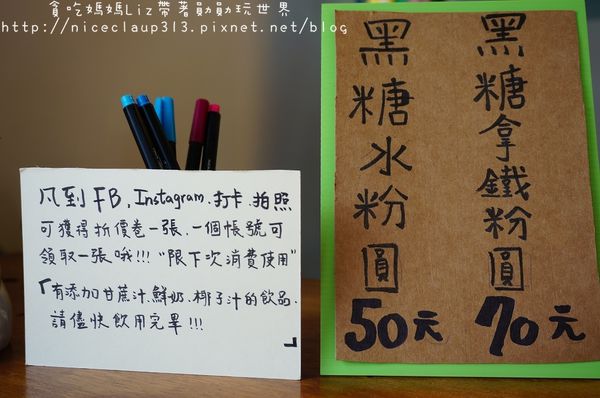 貪吃媽媽Liz帶著勛勛玩世界
http://niceclaup313.pixnet.net/blog
凡到FB.Instagram.打卡.拍照
可獲得折價卷一張.一個帳號可
領取一張哦!!!"限下次消費使用"
「有添加甘蔗汁.鮮奶.椰子汁的飲品.
請儘快飲用完畢!!!」
黑糖水粉圓
50元
黑糖拿鐵粉圓
70元